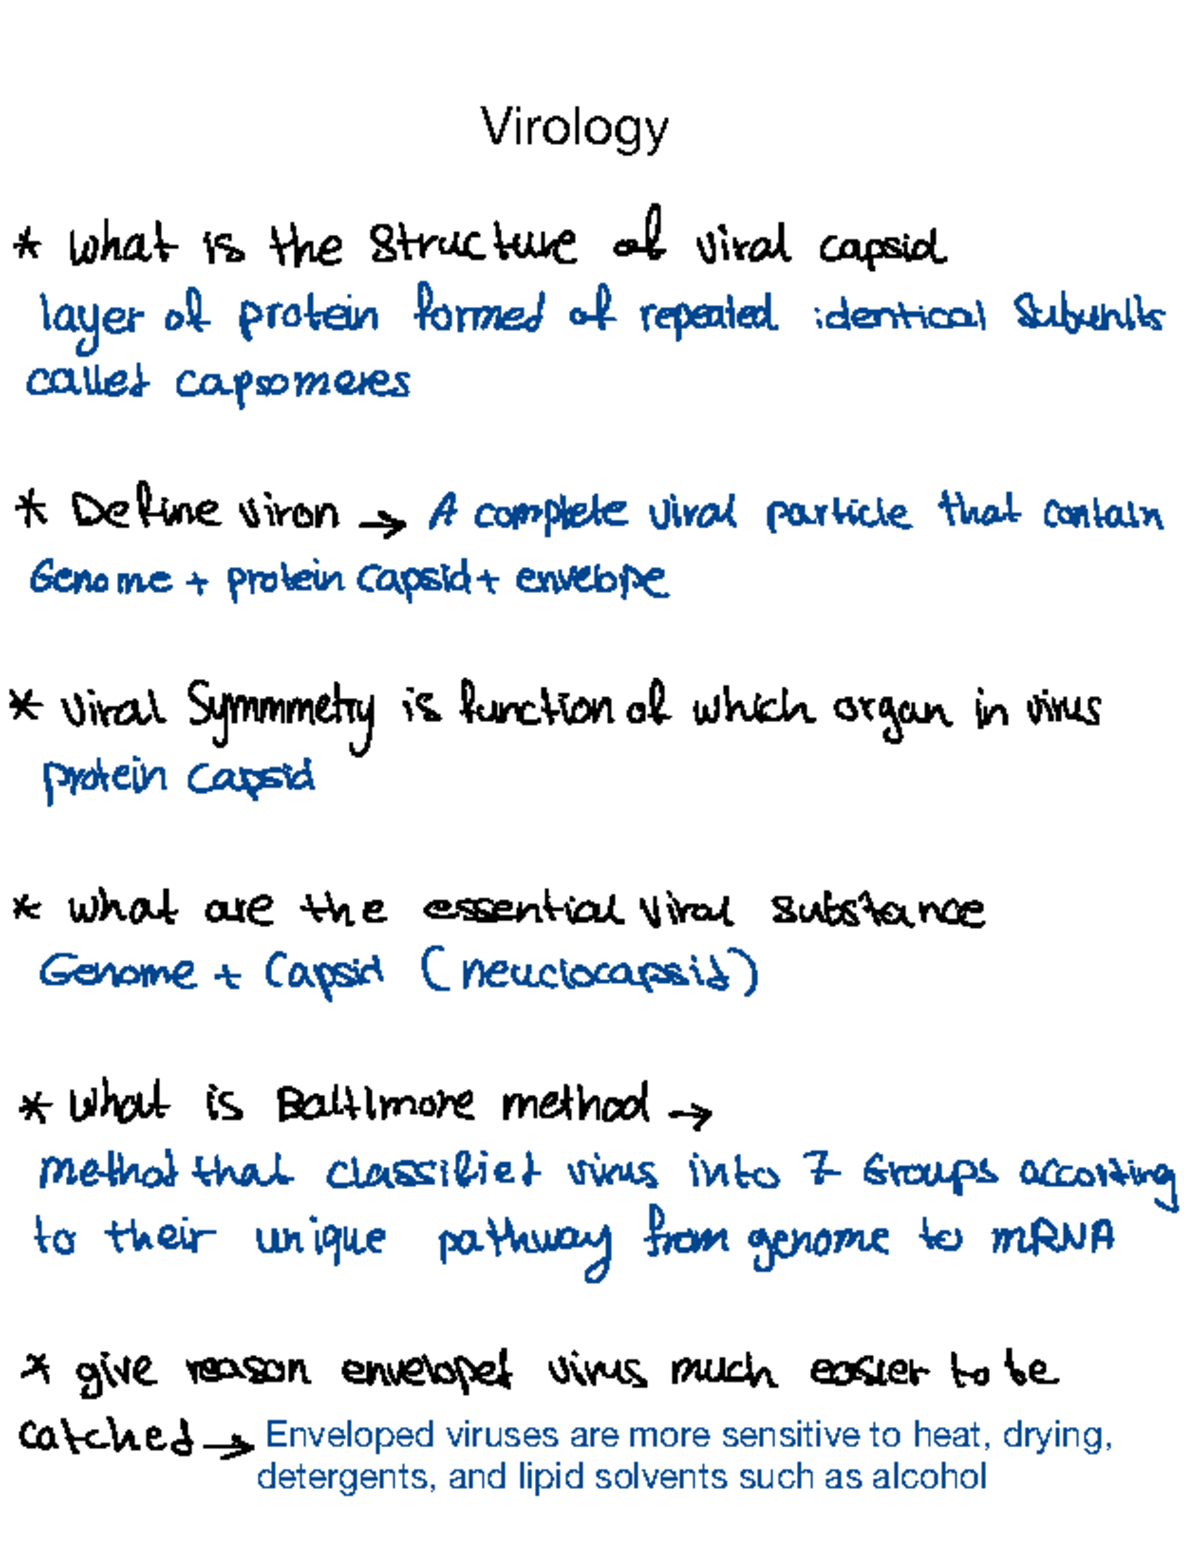 Virology
* what is the structure of viral capsid
layer of protein formed of repeated identical subunits
callet capsomeres
* Define viron → A complete viral particle that contain
Genome + protein capsid + envelope
* viral Symmmetry is function of which organ in virus
protein capsid
* what are the essential viral substance
Genome + Capsid (neuclocapsid)
* what is Baltimore method →
methot that classifiet virus into 7 Groups accorting
to their unique pathway from genome to mRNA
* give reason envelopet virus much easier to be
catched → Enveloped viruses are more sensitive to heat, drying,
detergents, and lipid solvents such as alcohol